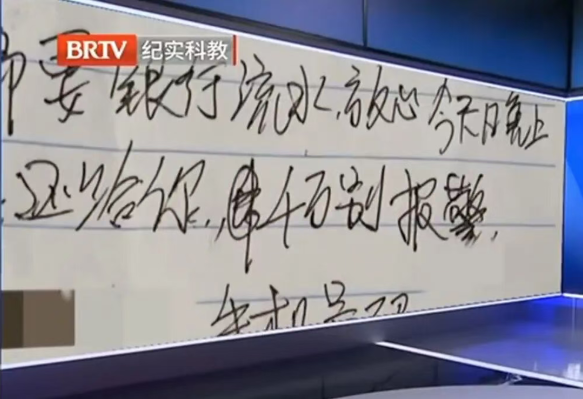 BRTV 纪实科教
需要银行流水,放心今天日晚上
还给你,千万别报警,
手机号码